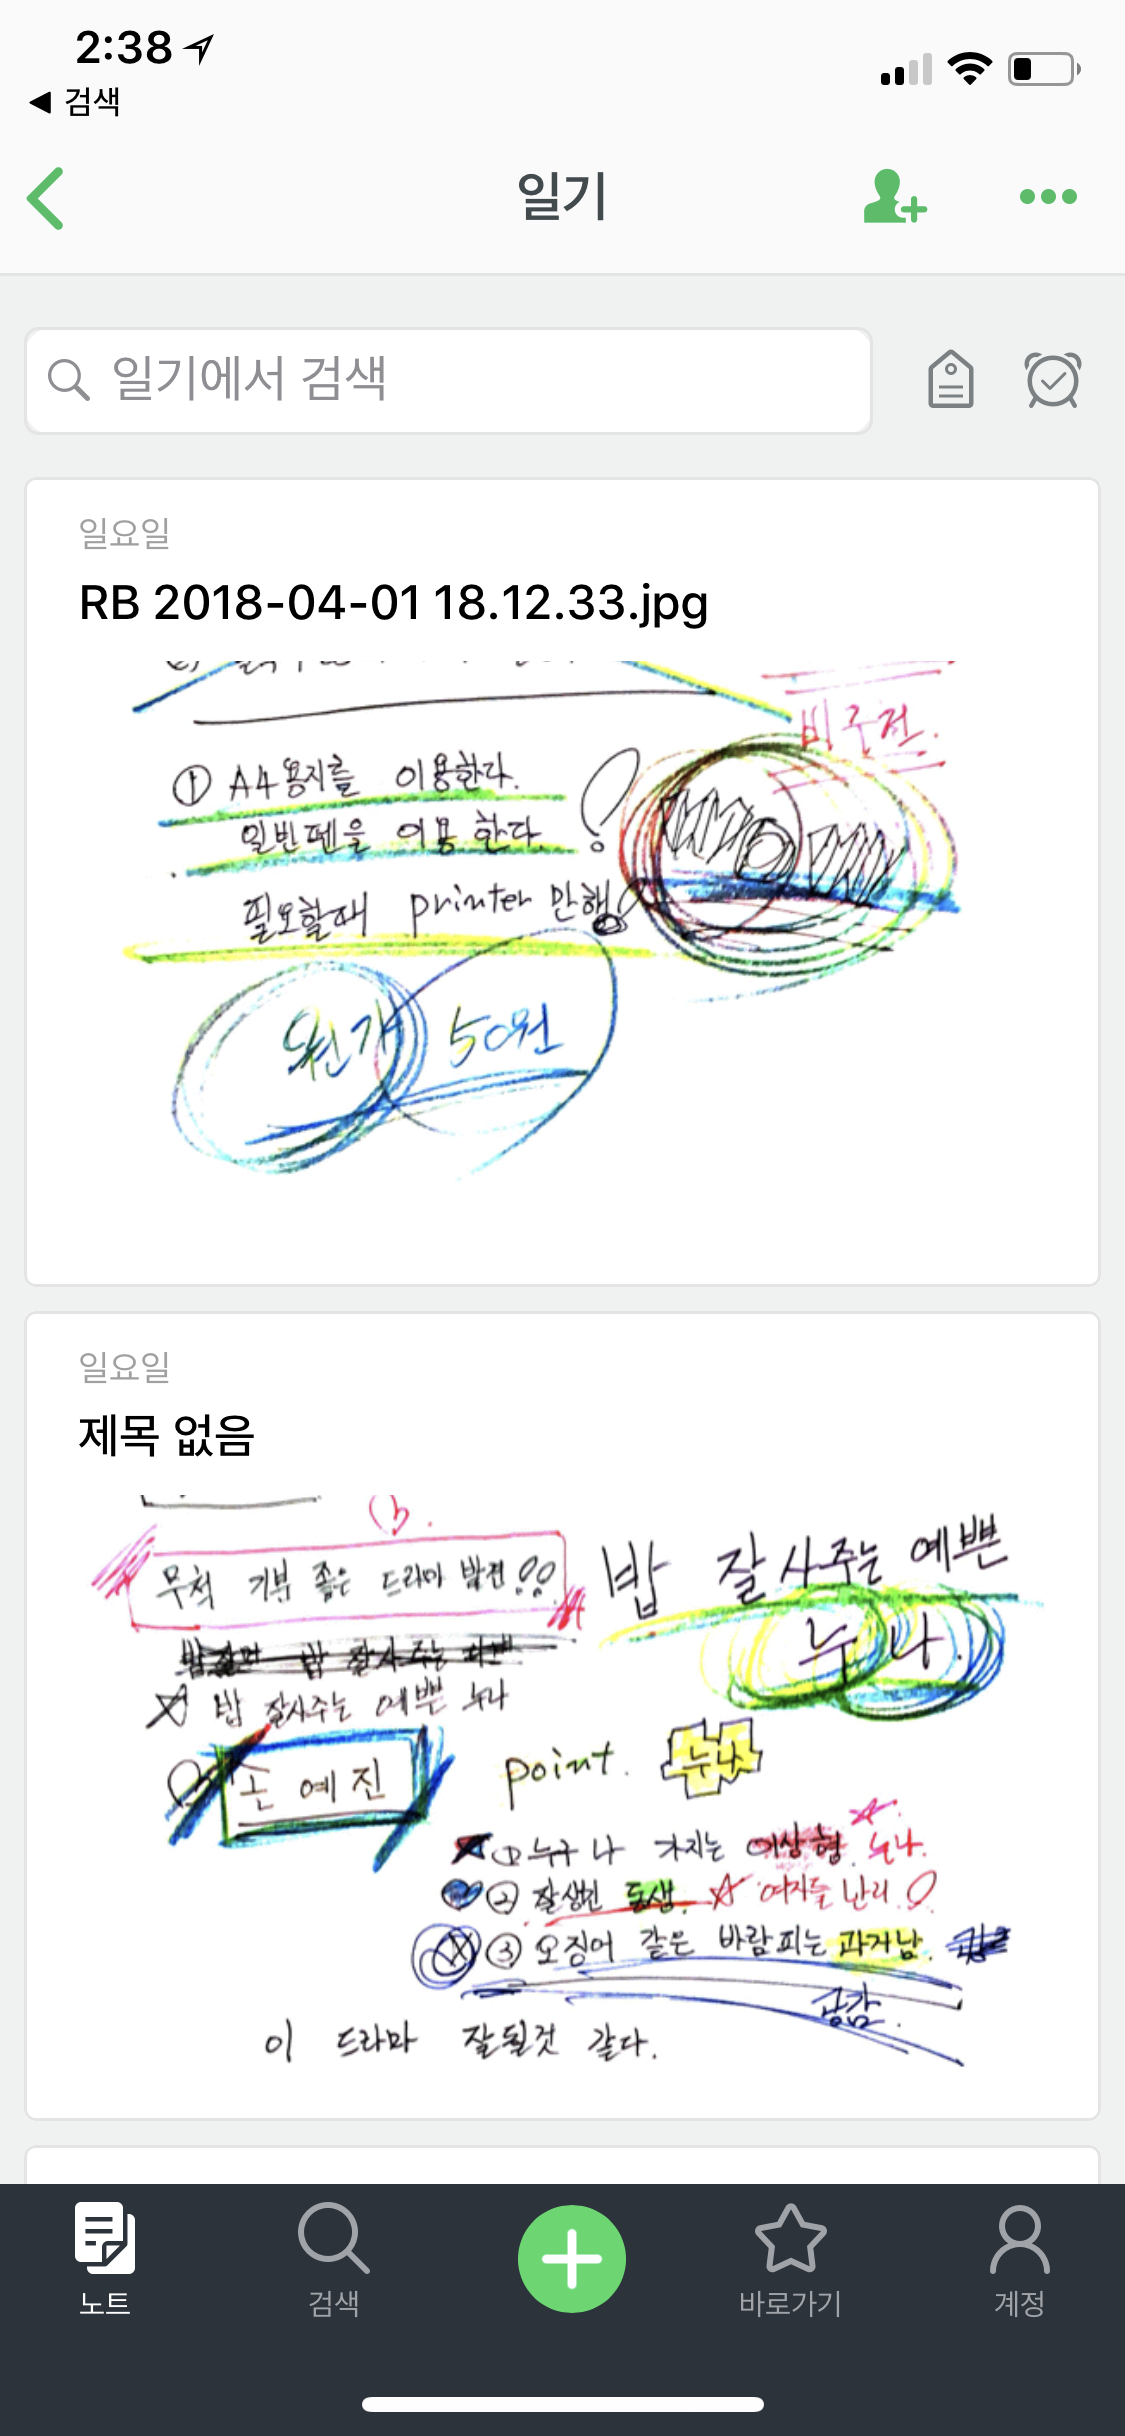 2:38
◀ 검색
일기
일기에서 검색
일요일
RB 2018-04-01 18.12.33.jpg
비주전.
① A4용지를 이용한다.
일반펜을 이용한다.
필요할때 printer 만해!
50원
일요일
제목 없음
무척 기분 좋은 드라마 발견!!
밥 잘 사주는 예쁜
누나.
밥 잘사주는 예쁜 누나
손예진
point. 누나
① 누구나 가지는 이상형. 누나.
② 잘생긴 동생. 여자들 난리!
③ 오징어 같은 바람피는 과거남.
공감.
이 드라마 잘될것 같다.
노트
검색
바로가기
계정